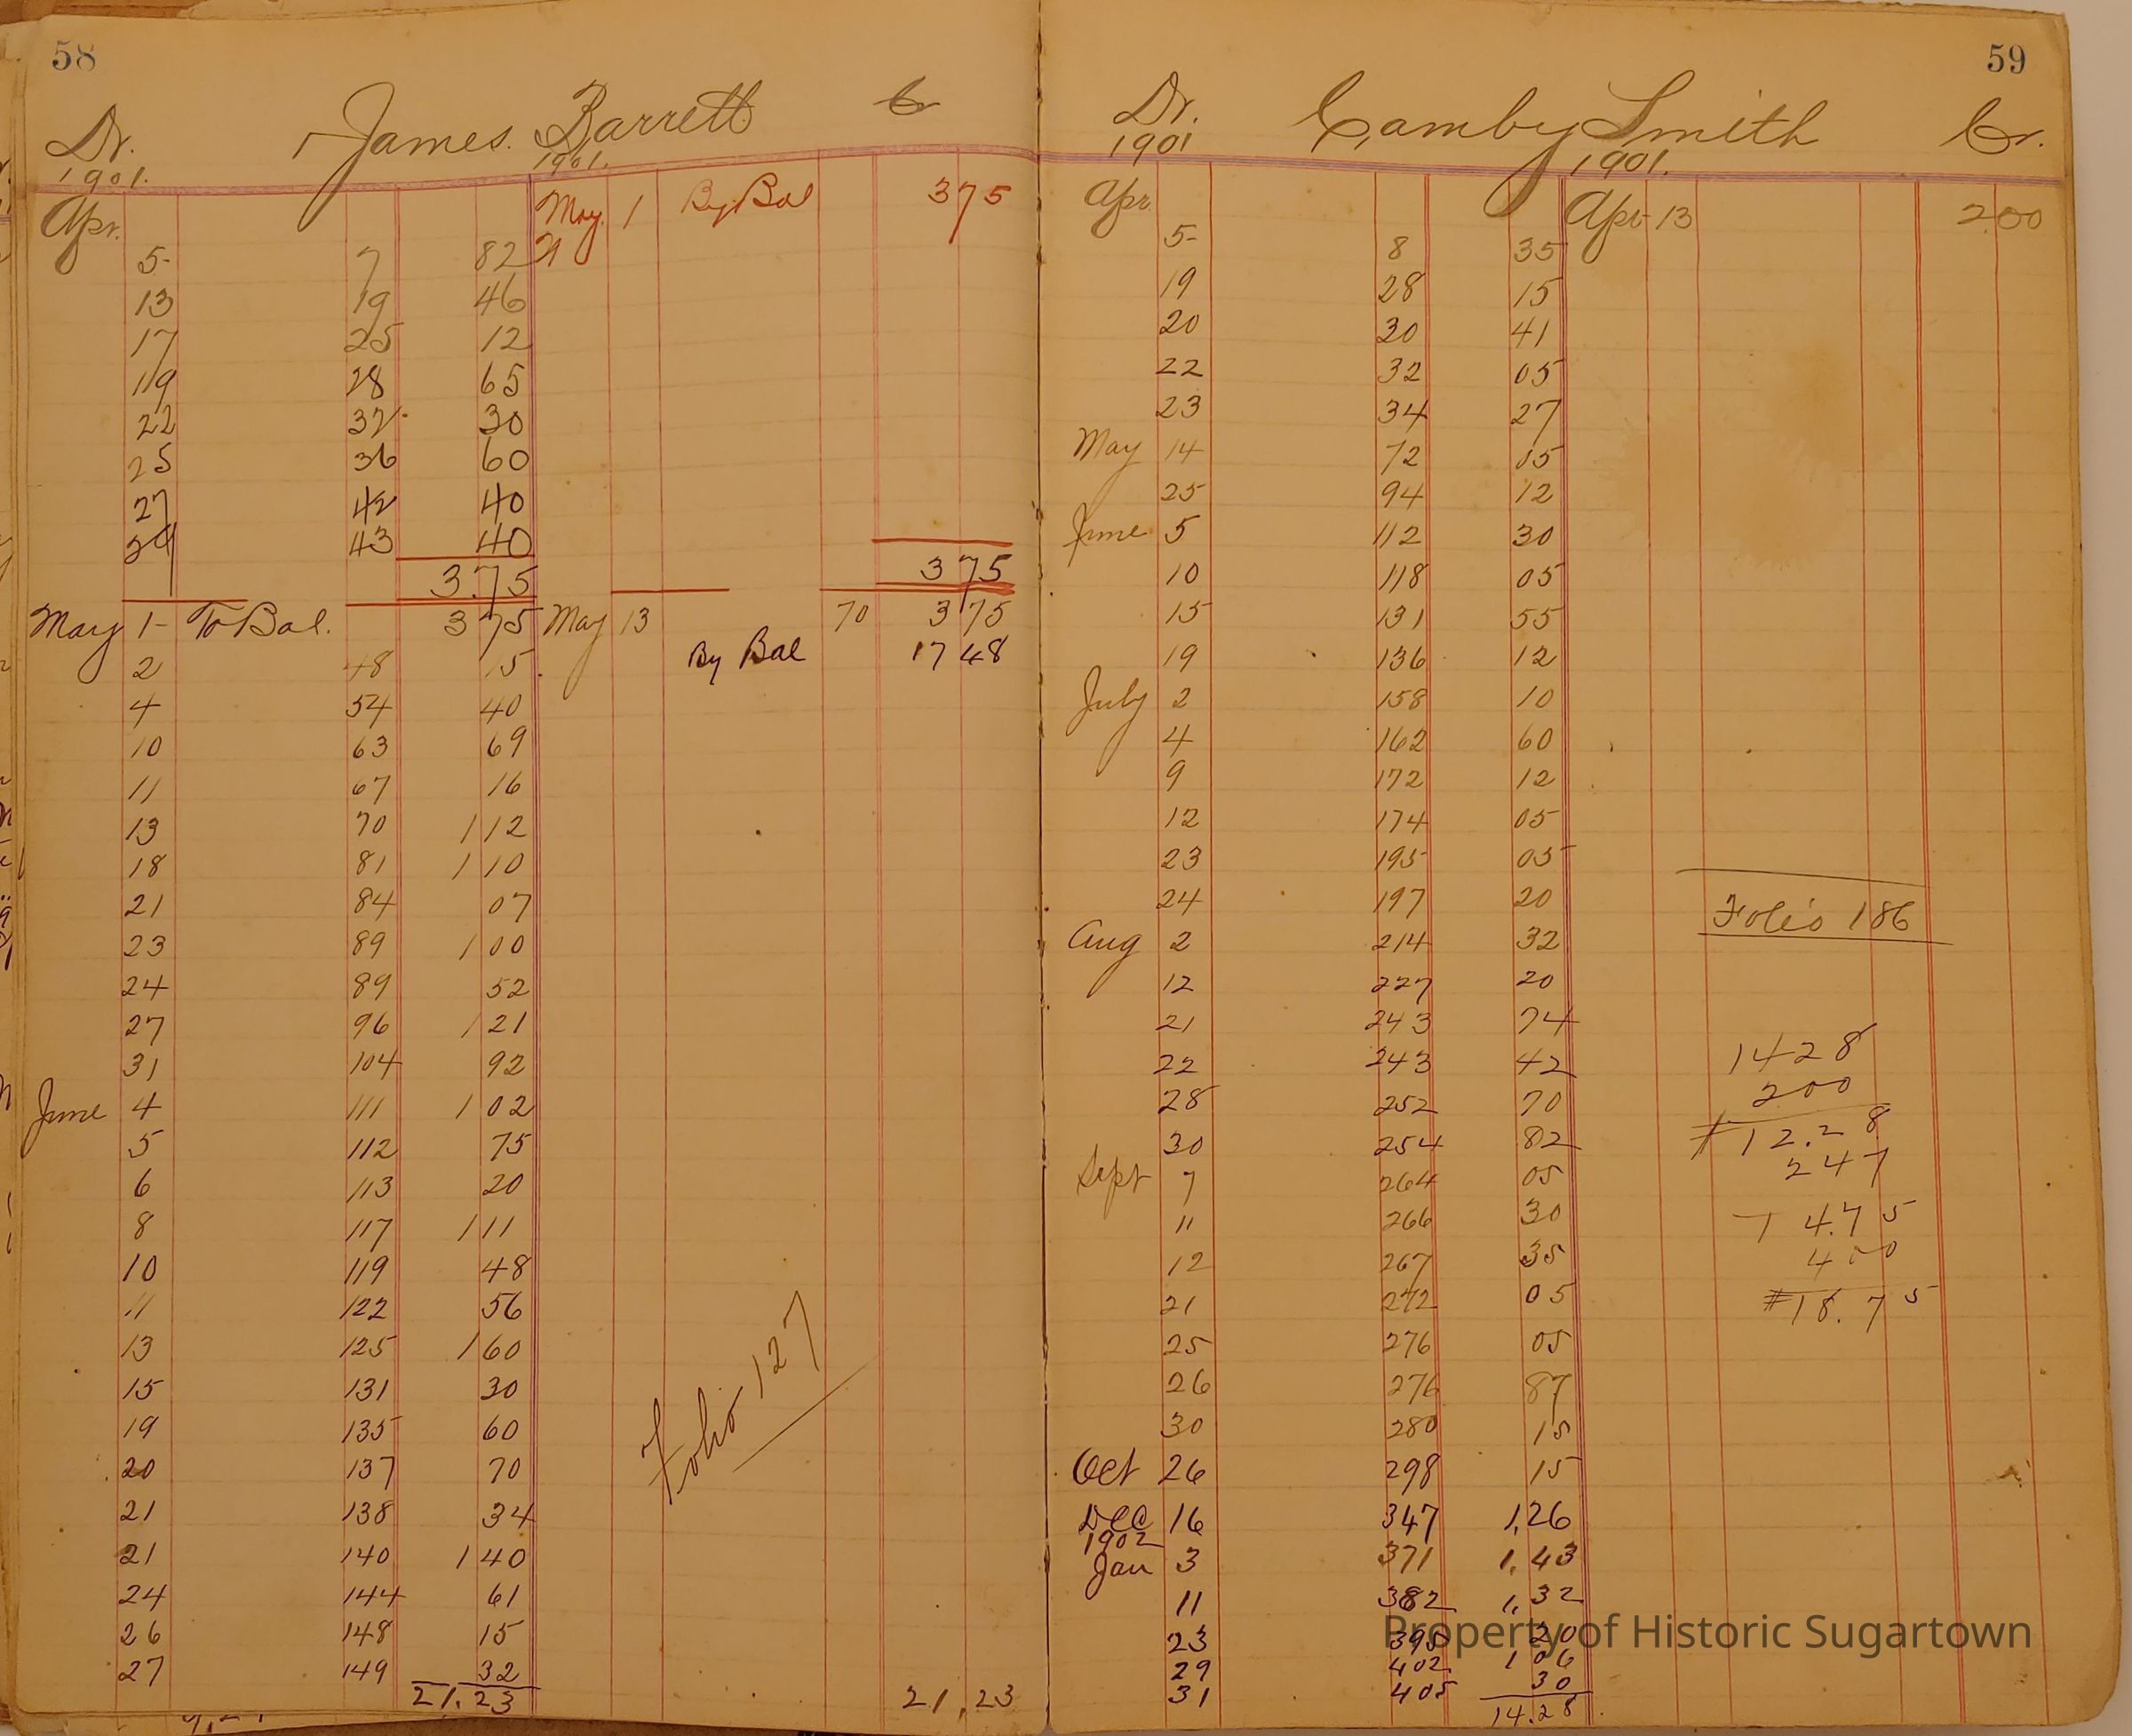 58
Dr. James. Barrett Cr
1901. 1901.
Apr. May 1 By Bal 3 75
5 7 82
13 19 46
17 25 12
19 28 65
22 32 30
25 36 60
27 42 40
29 43 40
3.75 3 75
May 1 To Bal. 3 75 May 13 70 3 75
2 48 15 By Bal 17 48
4 54 40
10 63 69
11 67 16
13 70 1 12
18 81 1 10
21 84 07
23 89 1 00
24 89 52
27 96 1 21
31 104 92
June 4 111 1 02
5 112 75
6 113 20
8 117 1 11
10 119 48
11 122 56
13 125 1 60
15 131 30
19 135 60
20 137 70
21 138 34
21 140 1 40
24 144 61
26 148 15
27 149 32
21.23 21,23
Folio 127
59
Dr. Camby Smith Cr.
1901 1901.
Apr. Apr 13 2.00
5 8 35
19 28 15
20 30 41
22 32 05
23 34 27
May 14 72 05
25 94 12
June 5 112 30
10 118 05
15 131 55
19 136 12
July 2 158 10
4 162 60
9 172 12
12 174 05
23 195 05
24 197 20
Aug 2 214 32
12 227 20
21 243 74
22 243 42
28 252 70
30 254 82
Sept 7 264 05
11 266 30
12 267 35
21 272 05
25 276 05
26 276 87
30 280 15
Oct 26 298 15
Dec 16 347 1,26
1902
Jan 3 371 1.43
11 382 1.32
23 395 20
29 402 1 06
31 405 30
14.28
Folio 186
1428
200
12.28
247
14.75
400
#18.75
Property of Historic Sugartown